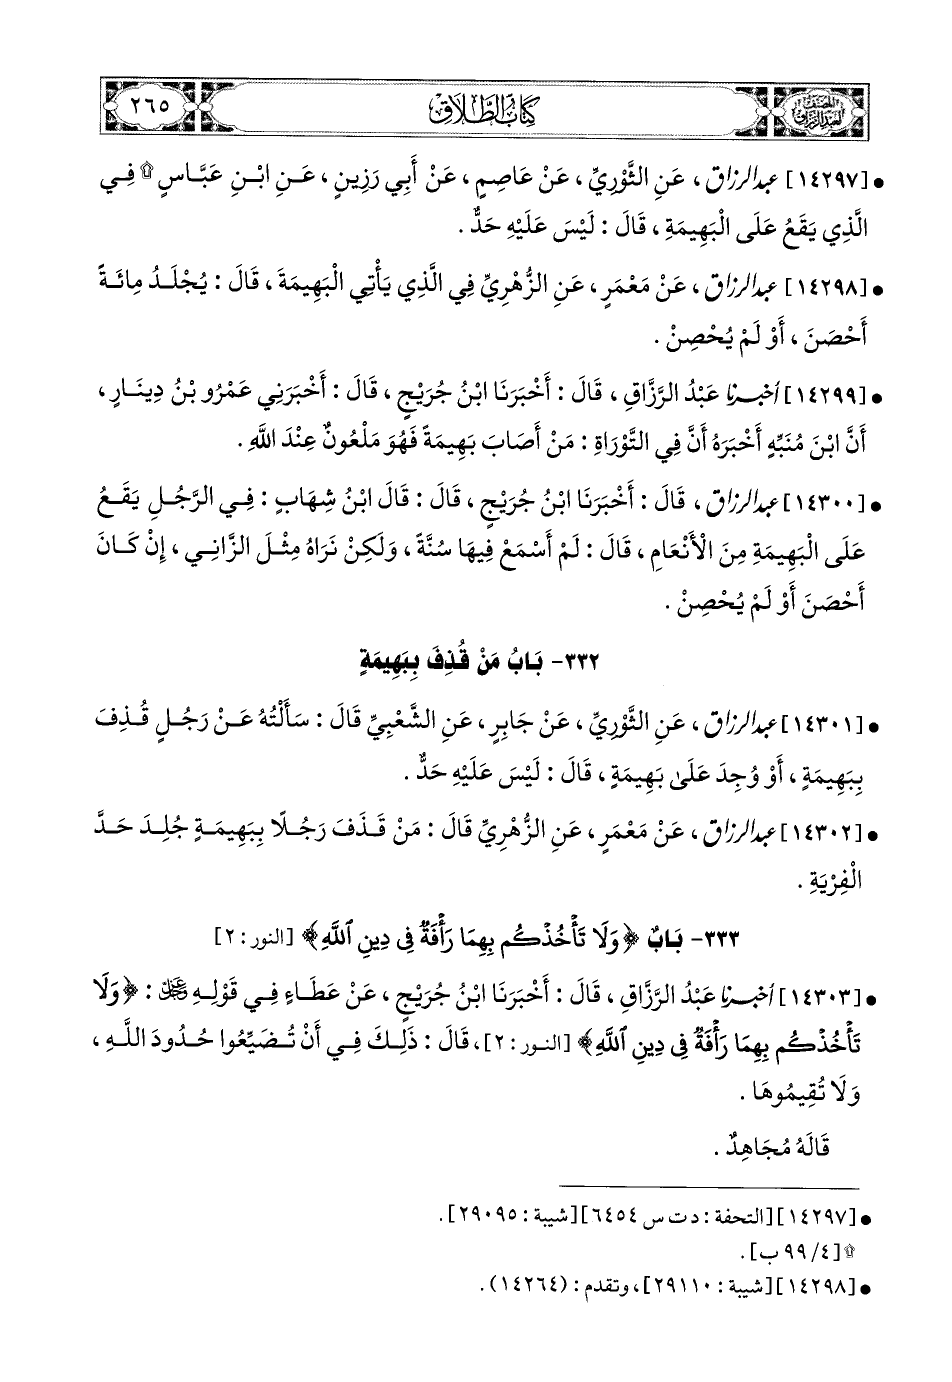 المصنف لعبد الرزاق
كتاب الطلاق
٢٦٥
• [١٤٢٩٧] عبد الرزاق ، عَنِ الثَّوْرِيِّ ، عَنْ عَاصِمٍ ، عَنْ أَبِي رَزِينٍ ، عَنِ ابْنِ عَبَّاسٍ ۩ فِي
الَّذِي يَقَعُ عَلَى الْبَهِيمَةِ ، قَالَ : لَيْسَ عَلَيْهِ حَدٌّ .
• [١٤٢٩٨] عبد الرزاق ، عَنْ مَعْمَرٍ ، عَنِ الزُّهْرِيِّ فِي الَّذِي يَأْتِي الْبَهِيمَةَ ، قَالَ : يُجْلَدُ مِائَةً
أَحْصَنَ ، أَوْ لَمْ يُحْصِنْ .
• [١٤٢٩٩] أخبرنا عَبْدُ الرَّزَّاقِ ، قَالَ : أَخْبَرَنَا ابْنُ جُرَيْجٍ ، قَالَ : أَخْبَرَنِي عَمْرُو بْنُ دِينَارٍ ،
أَنَّ ابْنَ مُنَبِّهٍ أَخْبَرَهُ أَنَّ فِي التَّوْرَاةِ : مَنْ أَصَابَ بَهِيمَةً فَهُوَ مَلْعُونٌ عِنْدَ اللَّهِ .
• [١٤٣٠٠] عبد الرزاق ، قَالَ : أَخْبَرَنَا ابْنُ جُرَيْجٍ ، قَالَ : قَالَ ابْنُ شِهَابٍ : فِي الرَّجُلِ يَقَعُ
عَلَى الْبَهِيمَةِ مِنَ الْأَنْعَامِ ، قَالَ : لَمْ أَسْمَعْ فِيهَا سُنَّةً ، وَلَكِنْ نَرَاهُ مِثْلَ الزَّانِي ، إِنْ كَانَ
أَحْصَنَ أَوْ لَمْ يُحْصِنْ .
٣٣٢- بَابُ مَنْ قُذِفَ بِبَهِيمَةٍ
• [١٤٣٠١] عبد الرزاق ، عَنِ الثَّوْرِيِّ ، عَنْ جَابِرٍ ، عَنِ الشَّعْبِيِّ قَالَ : سَأَلْتُهُ عَنْ رَجُلٍ قُذِفَ
بِبَهِيمَةٍ ، أَوْ وُجِدَ عَلَى بَهِيمَةٍ ، قَالَ : لَيْسَ عَلَيْهِ حَدٌّ .
• [١٤٣٠٢] عبد الرزاق ، عَنْ مَعْمَرٍ ، عَنِ الزُّهْرِيِّ قَالَ : مَنْ قَذَفَ رَجُلًا بِبَهِيمَةٍ جُلِدَ حَدَّ
الْفِرْيَةِ .
٣٣٣- بَابٌ ﴿وَلَا تَأْخُذْكُم بِهِمَا رَأْفَةٌ فِى دِينِ ٱللَّهِ﴾ [النور : ٢]
• [١٤٣٠٣] أخبرنا عَبْدُ الرَّزَّاقِ ، قَالَ : أَخْبَرَنَا ابْنُ جُرَيْجٍ ، عَنْ عَطَاءٍ فِي قَوْلِهِ ﷻ : ﴿وَلَا
تَأْخُذْكُم بِهِمَا رَأْفَةٌ فِى دِينِ ٱللَّهِ﴾ [النور : ٢] ، قَالَ : ذَلِكَ فِي أَنْ تُضَيِّعُوا حُدُودَ اللَّهِ ،
وَلَا تُقِيمُوهَا .
قَالَهُ مُجَاهِدٌ .
• [١٤٢٩٧] [التحفة : د ت س ٦٤٥٤] [شيبة : ٢٩٠٩٥] .
۩ [٤/ ٩٩ ب] .
• [١٤٢٩٨] [شيبة : ٢٩١١٠] ، وتقدم : (١٤٢٦٤) .